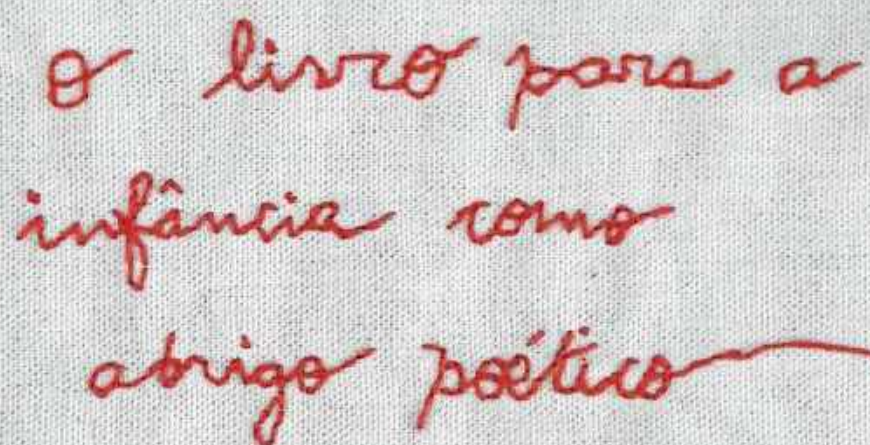 o livro para a
infância como
abrigo poético